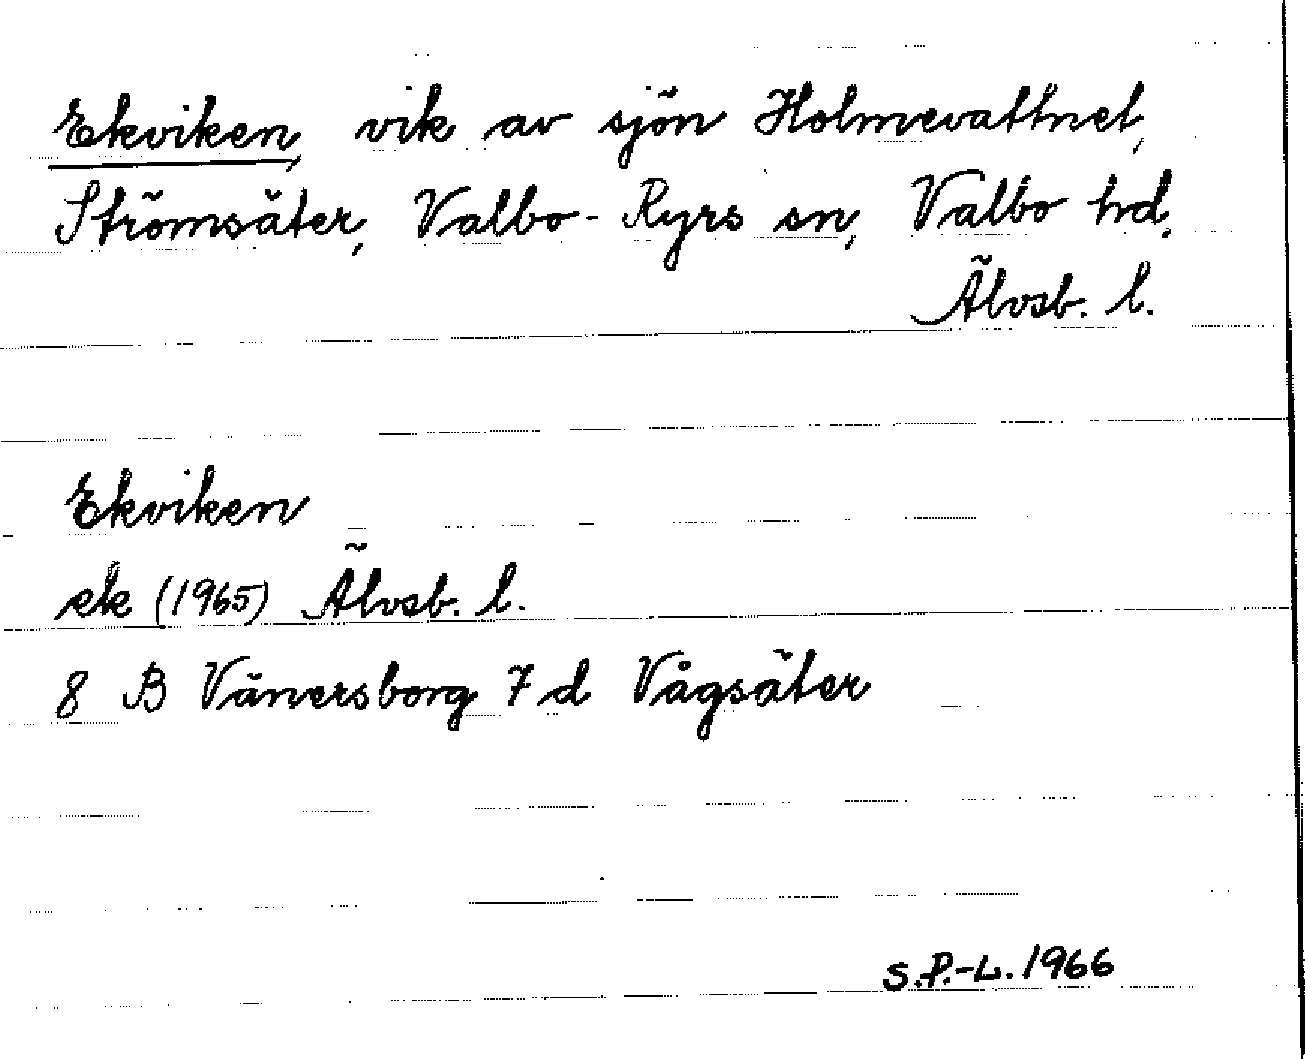 Ekviken, vik av sjön Holmevattnet,
Strömsäter, Valbo-Ryrs sn, Valbo hd,
Älvsb. l.
Ekviken
ek (1965) Älvsb. l.
8 B Vänersborg 7 d Vågsäter
S.P.-L. 1966